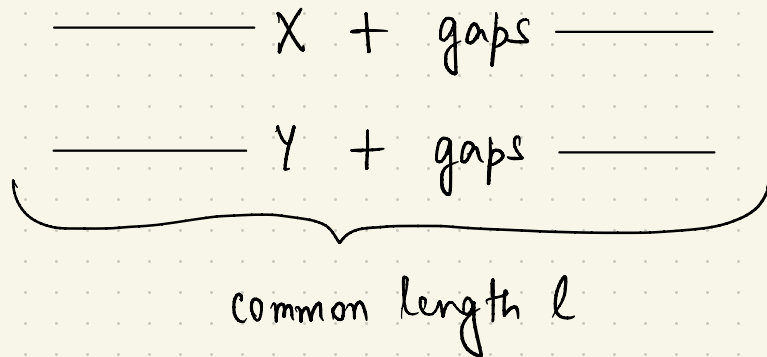 X + gaps
Y + gaps
common length l